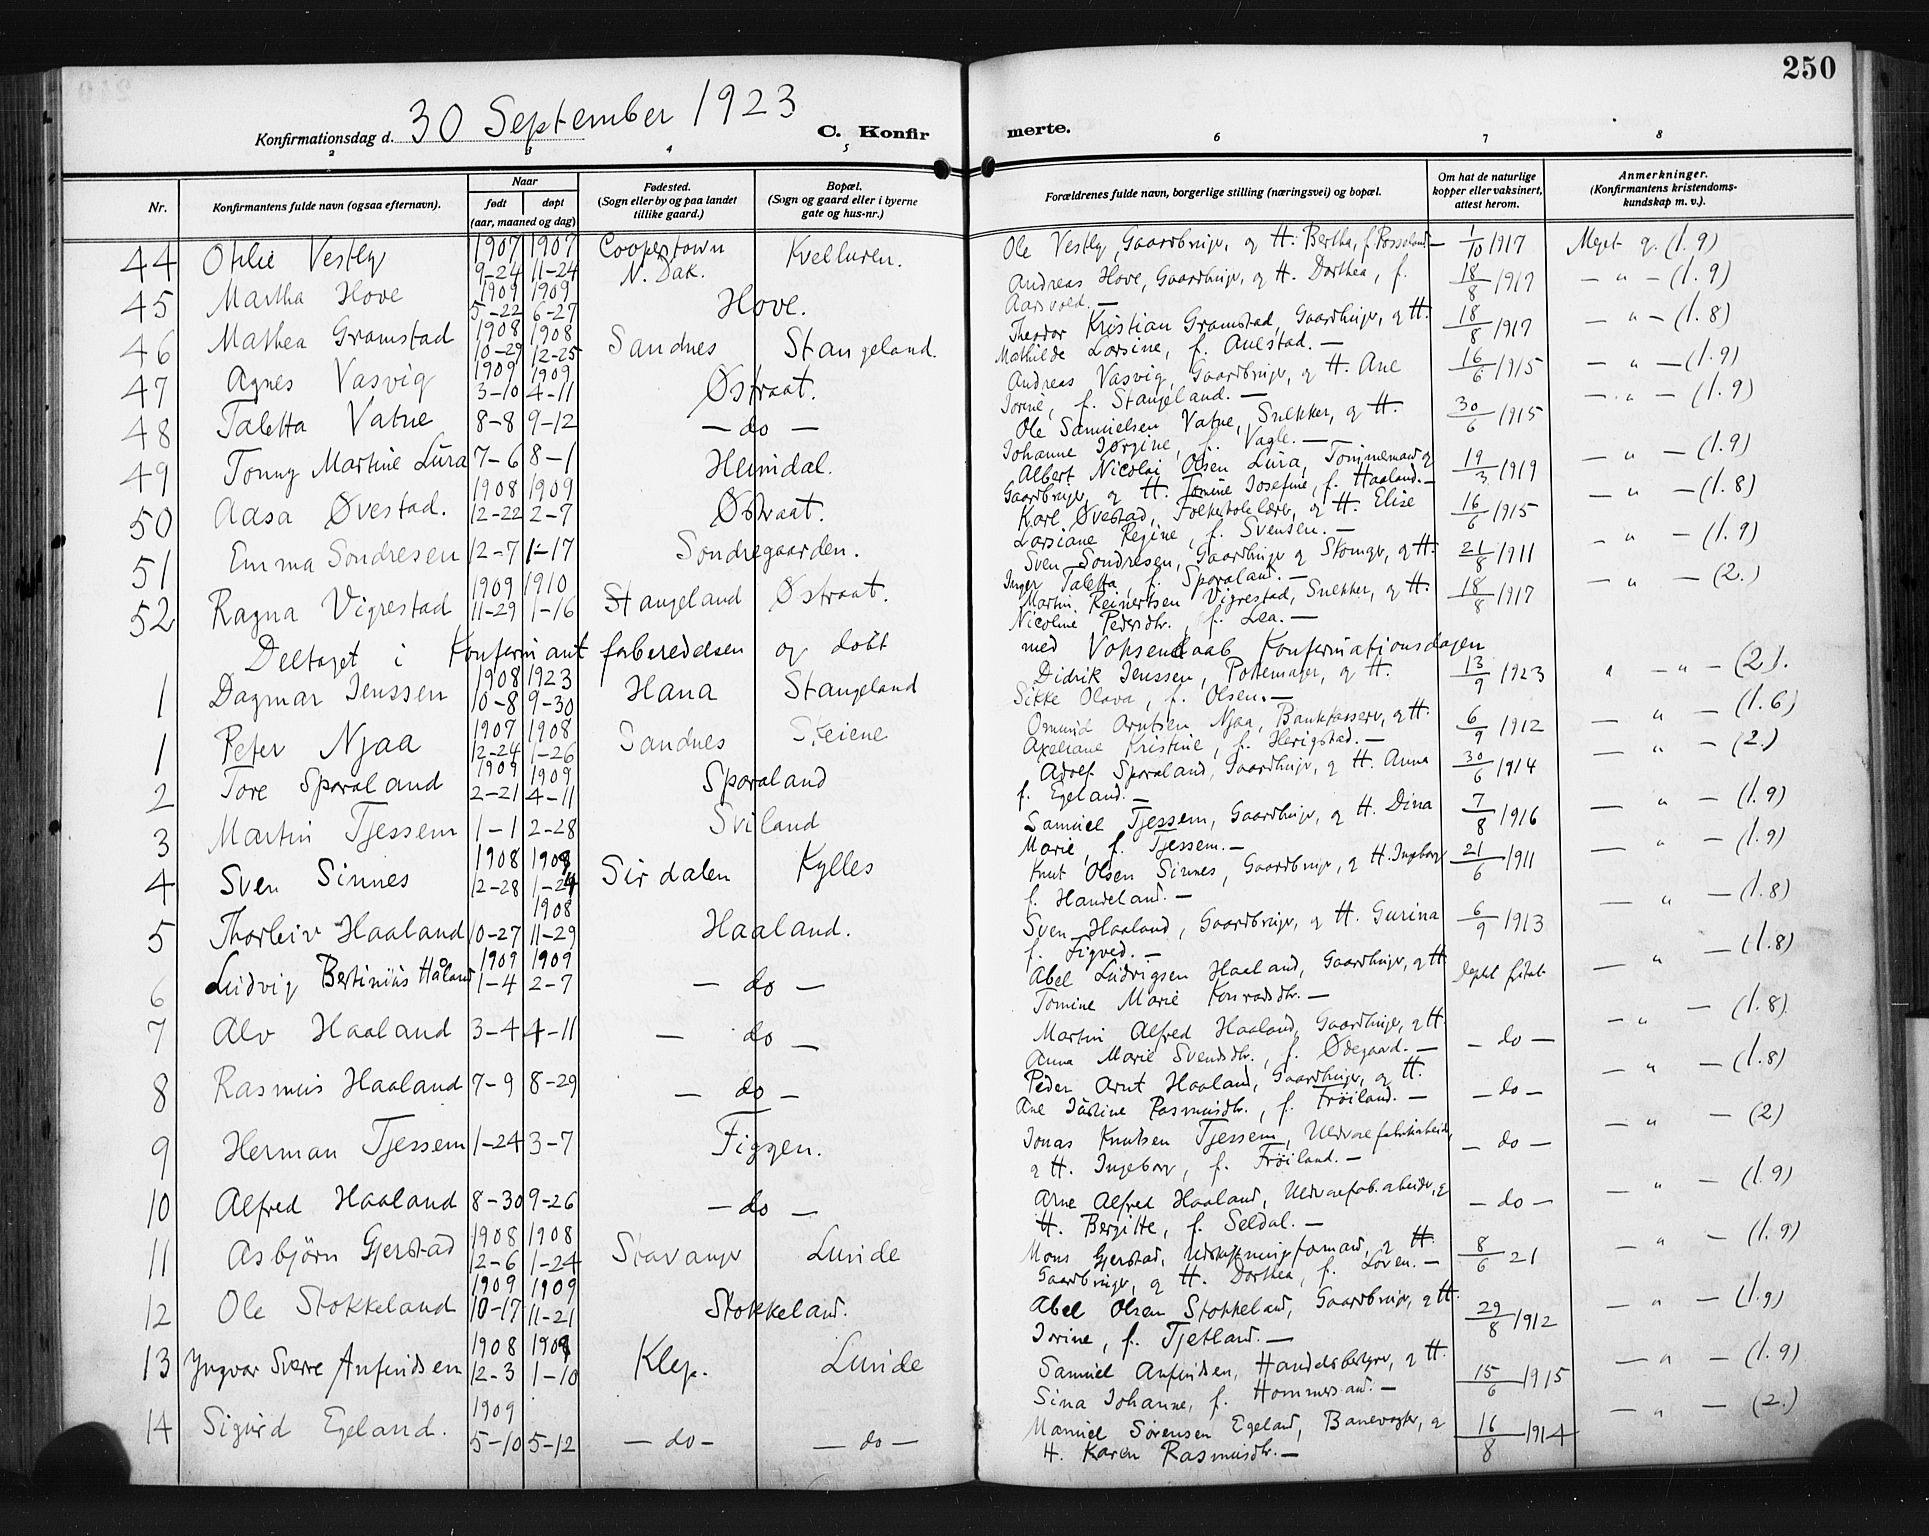 250
Konfirmationsdag d. 30 September 1923
C. Konfirmerte.
2 3 4 5 6 7 8
Nr.
Konfirmantens fulde navn (ogsaa efternavn).
Naar
født døpt
(aar, maaned og dag)
Fødested.
(Sogn eller by og paa landet
tillike gaard.)
Bopæl.
(Sogn og gaard eller i byerne
gate og hus-nr.)
Forældrenes fulde navn, borgerlige stilling (næringsvei) og bopæl.
Om hat de naturlige
kopper eller vaksinert,
attest herom.
Anmerkninger.
(Konfirmantens kristendoms-
kundskap m. v.).
44 Otilie Vestly 1907 9-24 1907 11-24 Cooperstown N. Dak. Kvelluren. Ole Vestly, Gaardbruger, og H. Bertha, f. 1/10 1917 Meget g. (1.9)
45 Martha Hove 1909 5-22 1909 6-27 Hove. Andreas Hove, Gaardbruger, og H. Dorthea, f.
Aarsvold. — 18/8 1917 — " — (1.9)
46 Mathea Gramstad 1908 10-29 1908 12-25 Sandnes Stangeland. Theodor Kristian Gramstad, Gaardbruger, og H.
Mathilde Lorsine, f. Auestad. — 18/8 1917 — " — (1.8)
47 Agnes Vasvig 1909 3-10 1909 4-11 Østraat. Andreas Vasvig, Gaardbruger, og H. Ane
Torine, f. Stangeland. — 16/6 1915 — " — (1.9)
48 Taletta Vatne 8-8 9-12 — do — Ole Samuelsen Vatne, Snekker, og H.
Johanne Jørgine, f. Vagle. — 30/6 1915 — " — (1.9)
49 Tonny Martine Lura 7-6 8-1 Heimdal. Albert Nicolai Olsen Lura, Tømmermand og
Gaardbruger, og H. Tomine Josefine, f. Haaland. — 19/3 1919 — " — (1.9)
50 Aasa Øvestad. 1908 12-22 1909 2-7 Østraat. Karl Øvestad, Folkeskolelærer, og H. Elise
Lorsiane Regine, f. Svensen. — 16/6 1915 — " — (1.8)
51 Emma Sondresen 12-7 1-17 Sondregaarden. Sven Sondresen, Gaardbruger og Skomager, og H.
Inger Taletta, f. Sporaland. — 21/8 1911 — " — (1.9)
52 Ragna Vigrestad 1909 11-29 1910 1-16 Stangeland Østraat. Martin Reinertsen Vigrestad, Snekker, og H.
Nicoline Pedersdtr., f. Lea. — 18/8 1917 — " — (2.)
Deltaget i Konfirmantforberedelsen og døbt med Voksendaab Konfirmationsdagen
1 Dagmar Jenssen 1908 10-8 1923 9-30 Hana Stangeland Didrik Jenssen, Pottemager, og H.
Sikke Olava, f. Olsen. — 13/9 1923 " — " — (2).
1 Peter Njaa 1907 12-24 1908 1-26 Sandnes Skeiene Omund Arntsen Njaa, Bankkasserer, og H.
Axeliane Kristine, f. Herigstad. — 6/9 1912 — " — (1.6)
2 Tore Sporaland 1909 2-21 1909 4-11 Sporaland Adolf Sporaland, Gaardbruger, og H. Anna
f. Egeland. — 30/6 1914 — " — (2.)
3 Martin Tjessem 1-1 2-28 Sviland Samuel Tjessem, Gaardbruger, og H. Dina
Marie, f. Tjessem. — 7/8 1916 — " — (1.9)
4 Sven Sinnes 1908 12-28 1909 1-24 Sirdalen Kylles Knut Olsen Sinnes, Gaardbruger, og H. Ingeborg
f. Handeland. — 21/6 1911 — " — (1.9)
5 Thorleiv Haaland 10-27 1908 11-29 Haaland. Sven Haaland, Gaardbruger, og H. Gurina
f. Figved. — 6/9 1913 — " — (1.8)
6 Ludvig Bertinius Håland 1909 1-4 1909 2-7 — do — Abel Ludvigsen Haaland, Gaardbruger, og H.
Tomine Marie Konradsdtr. — — " — (1.8)
7 Alv Haaland 3-4 4-11 — do — Martin Alfred Haaland, Gaardbruger, og H.
Anna Marie Svendsdtr., f. Ødegaard. — — do — — " — (1.8)
8 Rasmus Haaland 7-9 8-29 — do — Peder Arnt Haaland, Gaardbruger, og H.
Ane Justine Rasmusdtr., f. Frøiland. — — do — — " — (1.8)
9 Herman Tjessem 1-24 3-7 Figgen. Jonas Knutsen Tjessem, Uldvarefabrikarbeider,
og H. Ingeborg, f. Frøiland. — — do — — " — (2)
10 Alfred Haaland 8-30 9-26 — do — Arne Alfred Haaland, Uldvarefab.arbeider, og
H. Bergitte, f. Seldal. — — do — — " — (1.9)
11 Asbjörn Gjerstad 1908 12-6 1908 1-24 Stavanger Lunde Mons Gjerstad, Udskiftningsformand, og H.
Gaardbruger, og H. Dorthea, f. Loven. — 8/6 21 — " — (1.9)
12 Ole Stokkeland 1909 10-17 1909 11-21 Stokkeland. Abel Olsen Stokkeland, Gaardbruger, og H.
Torine, f. Tjetland. — 29/8 1912 — " — (1.9)
13 Yngvar Sverre Anfindsen 1908 12-3 1909 1-10 Klep. Lunde Samuel Anfindsen, Handelsbestyrer, og H.
Sina Johanne, f. Hommersand. — 15/6 1915 — " — (1.9)
14 Sigurd Egeland. 1909 5-10 5-12 — do — — do — Samuel Sørensen Egeland, Banevogter, og
H. Karen Rasmusdtr. — 16/8 1914 — " — (2.)